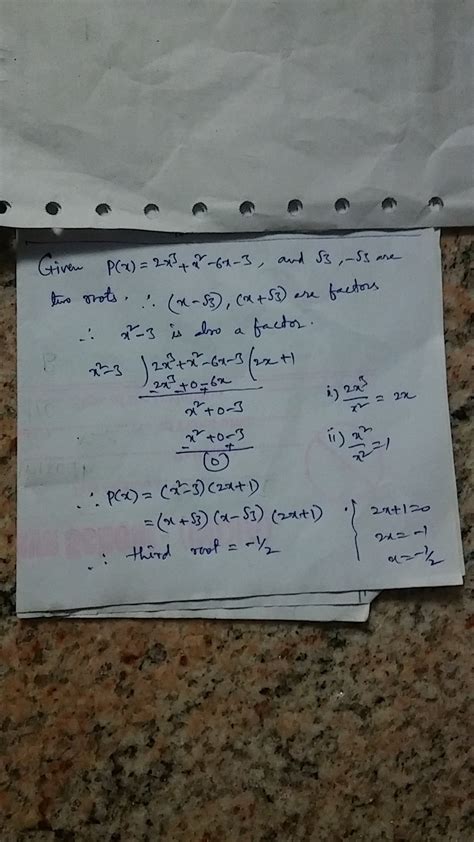 Given P(x) = 2x³ + x² - 6x - 3, and √3, -√3 are
two roots. ∴ (x - √3), (x + √3) are factors
∴ x² - 3 is also a factor.
x² - 3 ) 2x³ + x² - 6x - 3 ( 2x + 1
2x³ + 0 - 6x
- +
x² + 0 - 3
i) 2x³/x² = 2x
x² + 0 - 3
- +
(0)
ii) x²/x² = 1
∴ P(x) = (x² - 3) (2x + 1)
= (x + √3) (x - √3) (2x + 1)
∴ third root = -1/2
2x + 1 = 0
2x = -1
x = -1/2